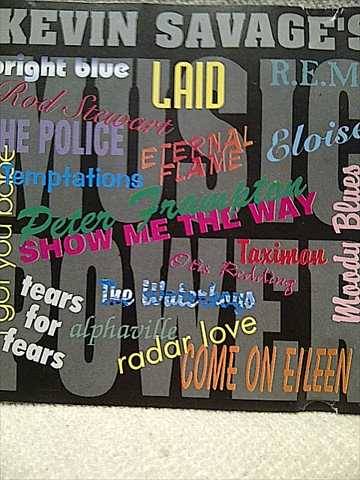 KEVIN SAVAGE'S
MUSIC
POWER
bright blue
LAID
R.E.M
Rod Stewart
HE POLICE
ETERNAL
FLAME
Eloise
Temptations
Peter Frampton
SHOW ME THE WAY
got you babe
Moody Blues
Taximon
Otis Redding
tears
for
fears
The Waterboys
alphaville
radar love
COME ON EILEEN